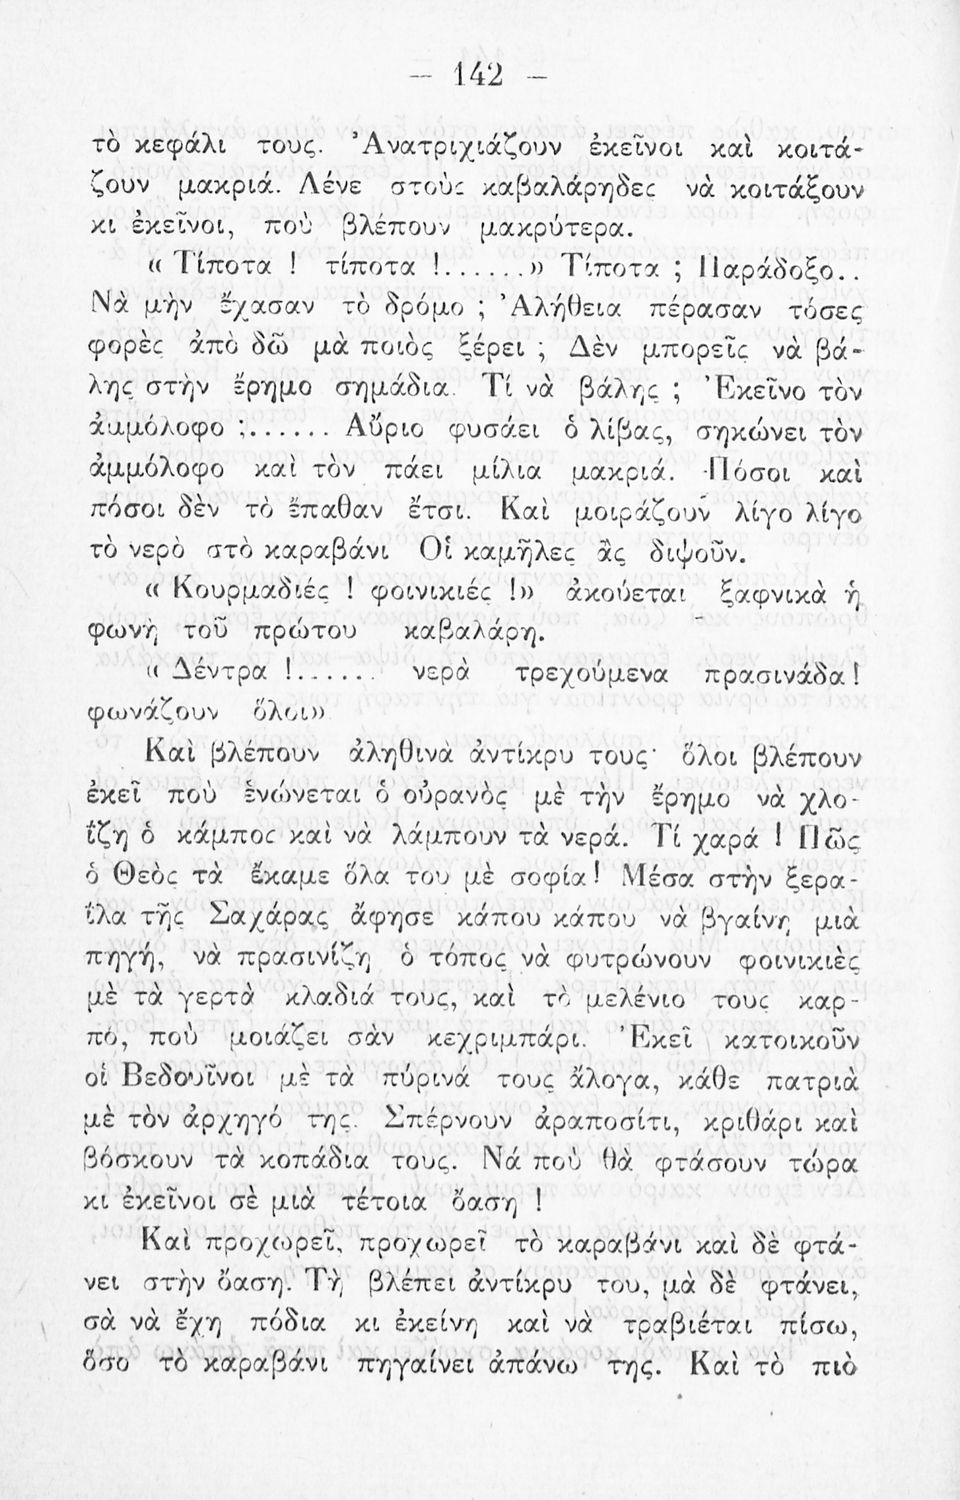 — 142 —
τὸ κεφάλι τους. Ἀνατριχιάζουν ἐκεῖνοι καὶ κοιτά-
ζουν μακριά. Λένε στοὺς καβαλάρηδες νὰ κοιτάξουν
κι ἐκεῖνοι, ποὺ βλέπουν μακρύτερα.
« Τίποτα ! τίποτα !......» Τίποτα ; Παράδοξο..
Νὰ μὴν ἔχασαν τὸ δρόμο ; Ἀλήθεια πέρασαν τόσες
φορὲς ἀπὸ δῶ μὰ ποιὸς ξέρει ; Δὲν μπορεῖς νὰ βά-
λης στὴν ἔρημο σημάδια. Τί νὰ βάλης ; Ἐκεῖνο τὸν
ἀμμόλοφο ;...... Αὔριο φυσάει ὁ λίβας, σηκώνει τὸν
ἀμμόλοφο καὶ τὸν πάει μίλια μακριά. Πόσοι καὶ
πόσοι δὲν τὸ ἔπαθαν ἔτσι. Καὶ μοιράζουν λίγο λίγο
τὸ νερὸ στὸ καραβάνι Οἱ καμῆλες ἂς διψοῦν.
« Κουρμαδιές ! φοινικιές !» ἀκούεται ξαφνικὰ ἡ
φωνὴ τοῦ πρώτου καβαλάρη.
« Δέντρα !...... νερὰ τρεχούμενα πρασινάδα !
φωνάζουν ὅλοι»
Καὶ βλέπουν ἀληθινὰ ἀντίκρυ τους· ὅλοι βλέπουν
ἐκεῖ ποὺ ἑνώνεται ὁ οὐρανὸς μὲ τὴν ἔρημο νὰ χλο-
ΐζη ὁ κάμπος καὶ νὰ λάμπουν τὰ νερά. Τί χαρά ! Πῶς
ὁ Θεὸς τὰ ἔκαμε ὅλα του μὲ σοφία ! Μέσα στὴν ξερα-
ΐλα τῆς Σαχάρας ἄφησε κάπου κάπου νὰ βγαίνη μιὰ
πηγή, νὰ πρασινίζη ὁ τόπος νὰ φυτρώνουν φοινικιὲς
μὲ τὰ γερτὰ κλαδιά τους, καὶ τὸ μελένιο τους καρ-
πό, ποὺ μοιάζει σὰν κεχριμπάρι. Ἐκεῖ κατοικοῦν
οἱ Βεδουῖνοι μὲ τὰ πύρινά τους ἄλογα, κάθε πατριὰ
μὲ τὸν ἀρχηγό της. Σπέρνουν ἀραποσίτι, κριθάρι καὶ
βόσκουν τὰ κοπάδια τους. Νά ποὺ θὰ φτάσουν τώρα
κι ἐκεῖνοι σὲ μιὰ τέτοια ὄαση !
Καὶ προχωρεῖ, προχωρεῖ τὸ καραβάνι καὶ δὲ φτά-
νει στὴν ὄαση. Τὴ βλέπει ἀντίκρυ του, μὰ δὲ φτάνει,
σὰ νὰ ἔχη πόδια κι ἐκείνη καὶ νὰ τραβιέται πίσω,
ὅσο τὸ καραβάνι πηγαίνει ἀπάνω της. Καὶ τὸ πιὸ